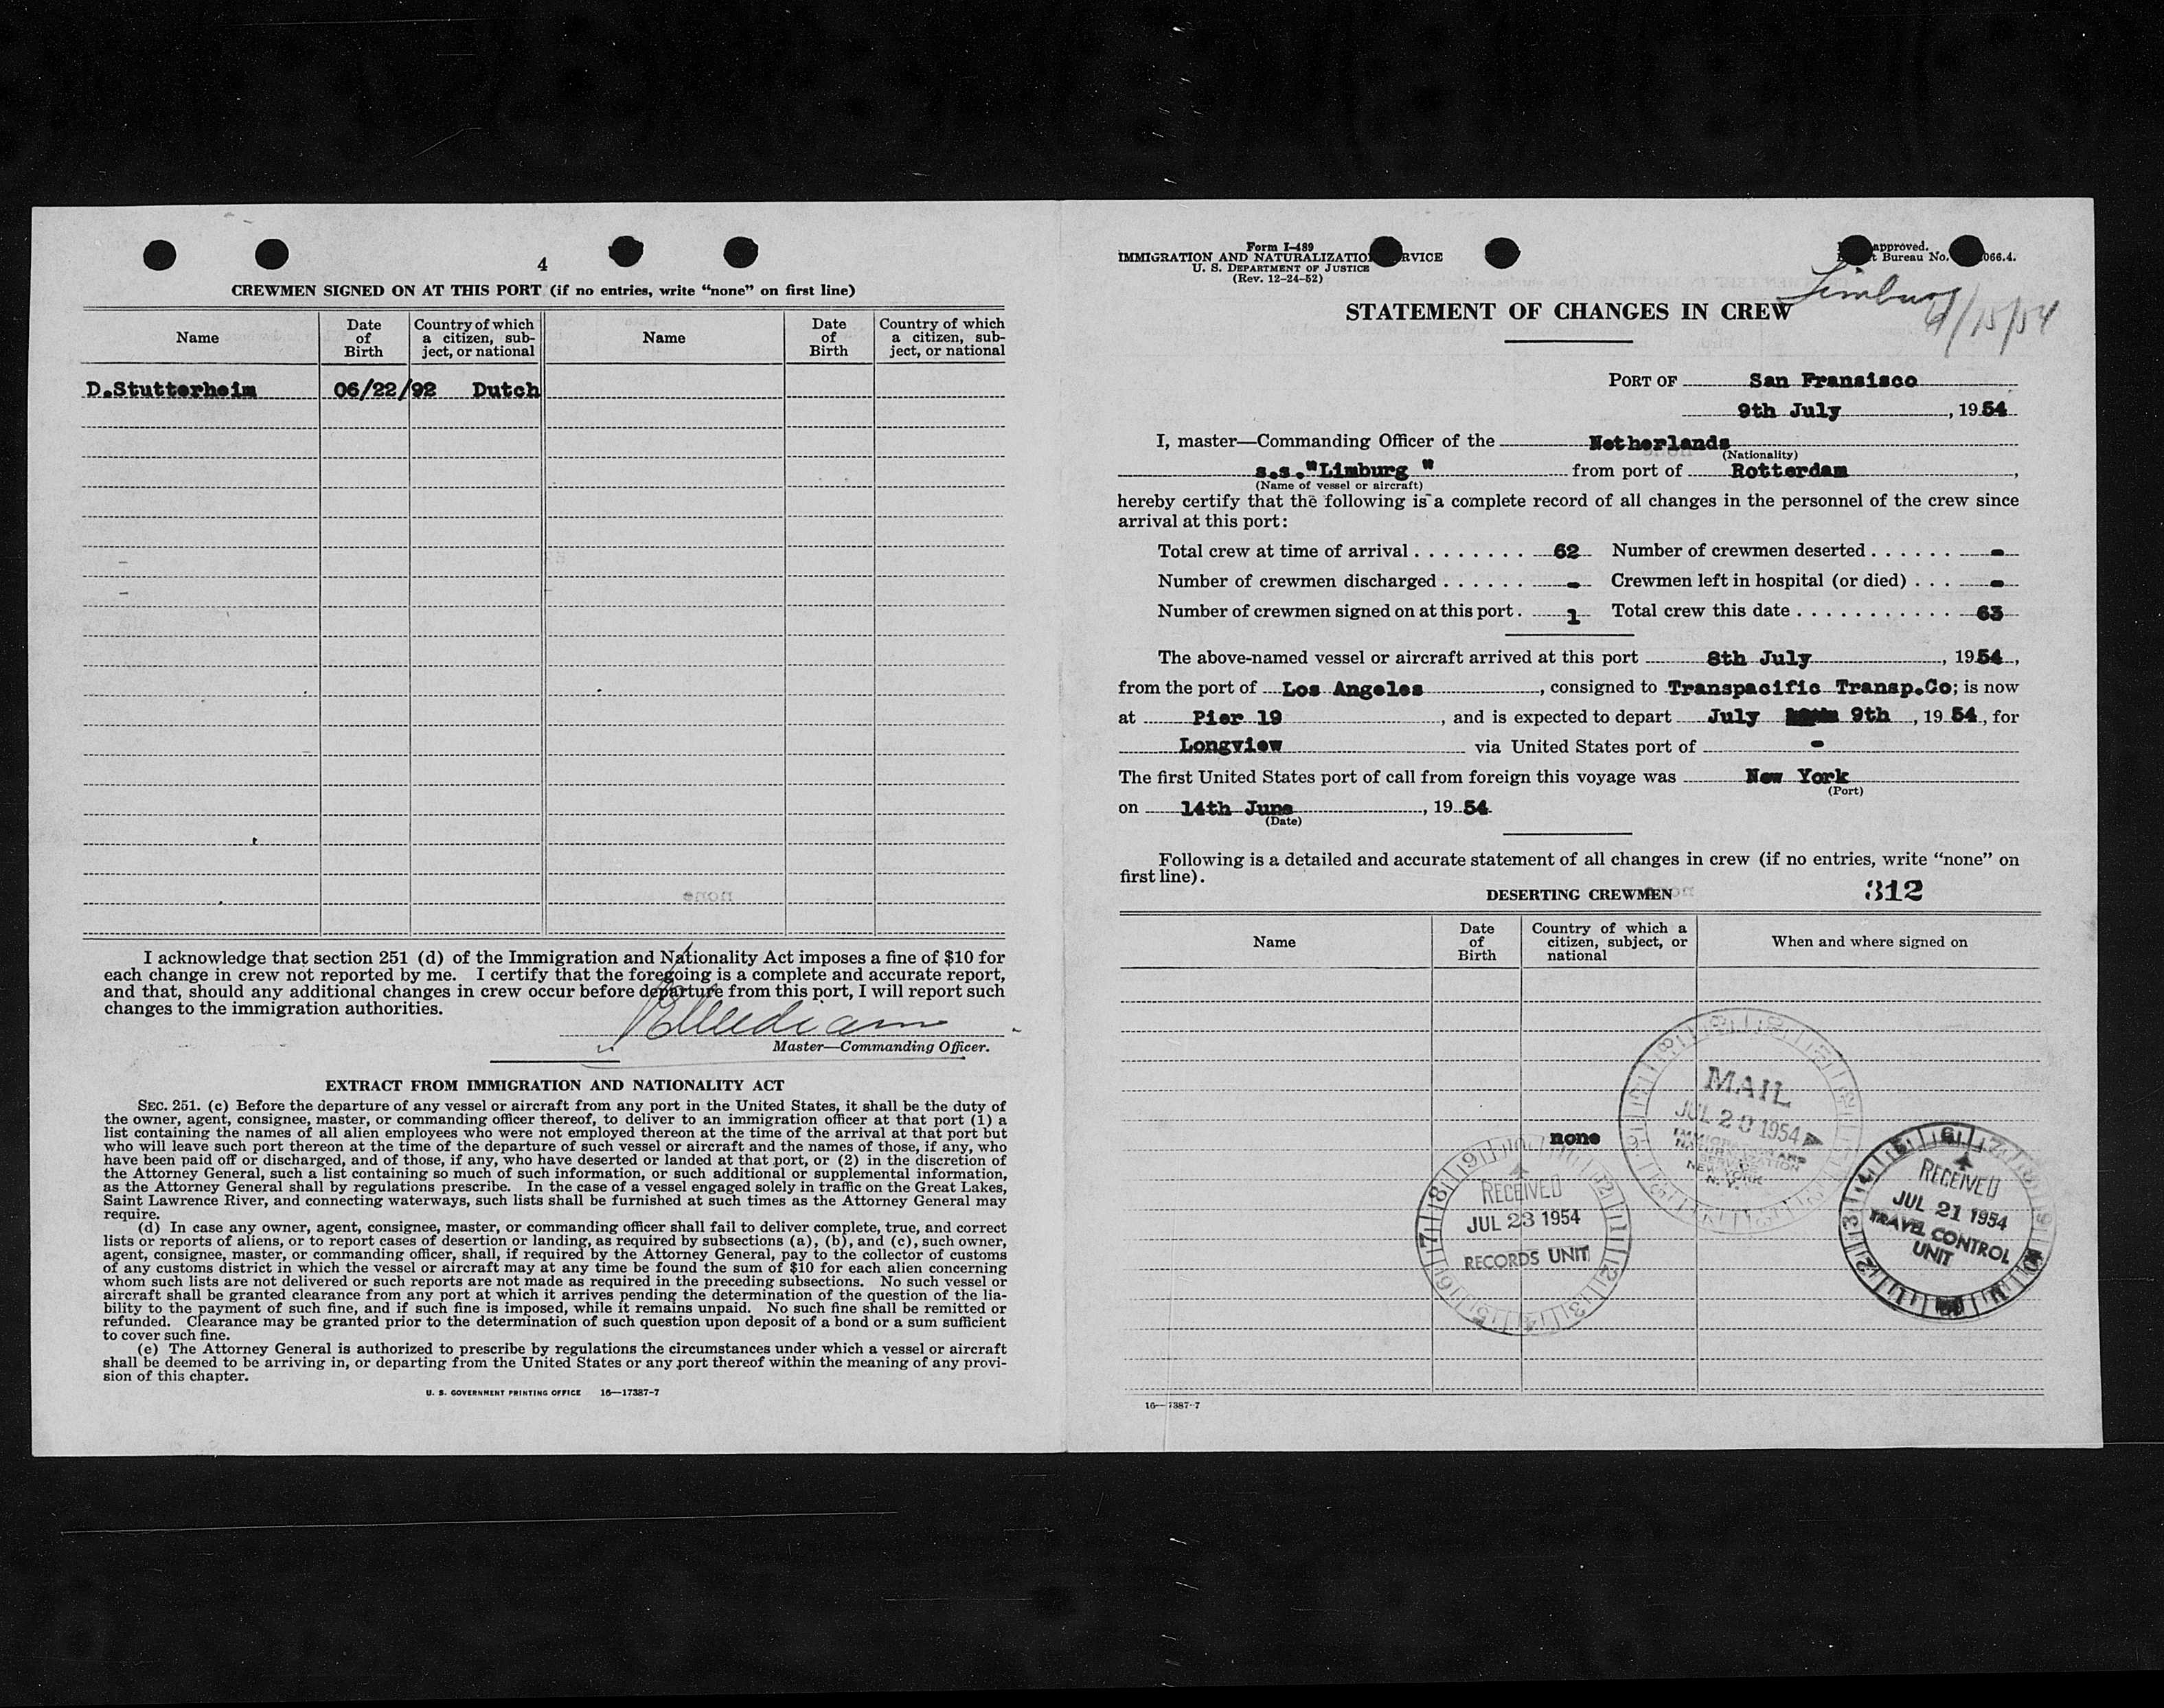 4
CREWMEN SIGNED ON AT THIS PORT (if no entries, write “none” on first line)
Name
Date of Birth
Country of which a citizen, subject, or national
Name
Date of Birth
Country of which a citizen, subject, or national
D.Stutterheim 06/22/92 Dutch
I acknowledge that section 251 (d) of the Immigration and Nationality Act imposes a fine of $10 for
each change in crew not reported by me. I certify that the foregoing is a complete and accurate report,
and that, should any additional changes in crew occur before departure from this port, I will report such
changes to the immigration authorities.
Master—Commanding Officer.
EXTRACT FROM IMMIGRATION AND NATIONALITY ACT
SEC. 251. (c) Before the departure of any vessel or aircraft from any port in the United States, it shall be the duty of
the owner, agent, consignee, master, or commanding officer thereof, to deliver to an immigration officer at that port (1) a
list containing the names of all alien employees who were not employed thereon at the time of the arrival at that port but
who will leave such port thereon at the time of the departure of such vessel or aircraft and the names of those, if any, who
have been paid off or discharged, and of those, if any, who have deserted or landed at that port, or (2) in the discretion of
the Attorney General, such a list containing so much of such information, or such additional or supplemental information,
as the Attorney General shall by regulations prescribe. In the case of a vessel engaged solely in traffic on the Great Lakes,
Saint Lawrence River, and connecting waterways, such lists shall be furnished at such times as the Attorney General may
require.
(d) In case any owner, agent, consignee, master, or commanding officer shall fail to deliver complete, true, and correct
lists or reports of aliens, or to report cases of desertion or landing, as required by subsections (a), (b), and (c), such owner,
agent, consignee, master, or commanding officer, shall, if required by the Attorney General, pay to the collector of customs
of any customs district in which the vessel or aircraft may at any time be found the sum of $10 for each alien concerning
whom such lists are not delivered or such reports are not made as required in the preceding subsections. No such vessel or
aircraft shall be granted clearance from any port at which it arrives pending the determination of the question of the lia-
bility to the payment of such fine, and if such fine is imposed, while it remains unpaid. No such fine shall be remitted or
refunded. Clearance may be granted prior to the determination of such question upon deposit of a bond or a sum sufficient
to cover such fine.
(e) The Attorney General is authorized to prescribe by regulations the circumstances under which a vessel or aircraft
shall be deemed to be arriving in, or departing from the United States or any port thereof within the meaning of any provi-
sion of this chapter.
U. S. GOVERNMENT PRINTING OFFICE 16—17387-7
Form I-489
IMMIGRATION AND NATURALIZATIO RVICE
U. S. DEPARTMENT OF JUSTICE
(Rev. 12-24-52)
approved.
t Bureau No. 066.4.
Limburg
6/15/54
STATEMENT OF CHANGES IN CREW
PORT OF San Fransisco
9th July, 1954
I, master—Commanding Officer of the Netherlands
(Nationality)
s.s."Limburg " from port of Rotterdam,
(Name of vessel or aircraft)
hereby certify that the following is a complete record of all changes in the personnel of the crew since
arrival at this port:
Total crew at time of arrival . . . . . . . . 62 Number of crewmen deserted . . . . . . -
Number of crewmen discharged . . . . . . - Crewmen left in hospital (or died) . . . -
Number of crewmen signed on at this port . 1 Total crew this date . . . . . . . . . . . 63
The above-named vessel or aircraft arrived at this port 8th July, 1954,
from the port of Los Angeles, consigned to Transpacific Transp.Co; is now
at Pier 19, and is expected to depart July 9th, 19 54, for
Longview via United States port of -
The first United States port of call from foreign this voyage was New York
(Port)
on 14th June, 19 54
(Date)
Following is a detailed and accurate statement of all changes in crew (if no entries, write “none” on
first line).
DESERTING CREWMEN
312
Name
Date of Birth
Country of which a citizen, subject, or national
When and where signed on
none
MAIL
JUL 20 1954
IMMIGRATION AND
NATURALIZATION
SERVICE
NEW YORK
N. Y.
RECEIVED
JUL 23 1954
RECORDS UNIT
RECEIVED
JUL 21 1954
TRAVEL CONTROL
UNIT